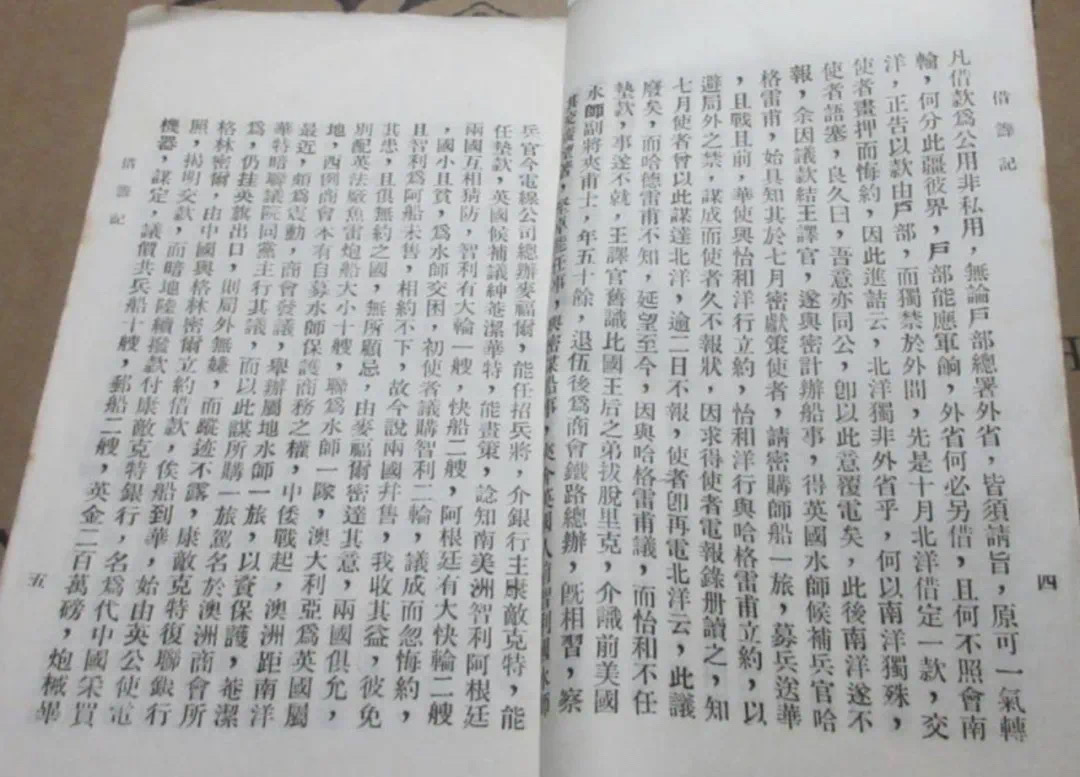 借籌記
四
凡借款爲公用非私用，無論戶部總署外省，皆須請旨，原可一氣轉
輸，何分此疆彼界，戶部能應軍餉，外省何必另借，且何不照會南
洋，正告以款由戶部，而獨禁於外間，先是十月北洋借定一款，交
使者畫押而悔約，因此進詰云，北洋獨非外省乎，何以南洋獨殊，
使者語塞，良久曰，吾意亦同公，卽以此意覆電矣，此後南洋遂不
報，余因議款結王譯官，遂與密計辦船事，得英國水師候補兵官哈
格雷甫，始具知其於七月密獻策使者，請密購師船一旅，募兵送華
，且戰且前，華使與怡和洋行立約，怡和洋行與哈格雷甫立約，以
避局外之禁，謀成而使者久不報狀，因求得使者電報錄册讀之，知
七月使者曾以此謀達北洋，逾二日不報，使者卽再電北洋云，此議
廢矣，而哈德雷甫不知，延望至今，因與哈格雷甫議，而怡和不任
墊款，事遂不就，王譯官舊識此國王后之弟拔脫里克，介識前美國
水師副將夾甫士，年五十餘，退伍後爲商會鐵路總辦，旣相習，察
兵官今電線公司總辦麥福爾，能任招兵將，介銀行主康敵克特，能
任墊款，英國候補議紳菴潔華特，能畫策，諗知南美洲智利阿根廷
兩國互相猜防，智利有大輪一艘，快船二艘，阿根廷有大快輪二艘
，國小且貧，爲水師交困，初使者議購智利二輪，議成而忽悔約，
且智利爲阿船未售，相約不下，故今說兩國幷售，我收其益，彼免
其患，且俱無約之國，無所顧忌，由麥福爾密達其意，兩國俱允，
別配英法嚴魚雷炮船大小十艘，聯爲水師一隊，澳大利亞爲英國屬
地，西例商會本有自募水師保護商務之權，中倭戰起，澳洲距南洋
最近，頗爲震動，商會發議，舉辦屬地水師一旅，以資保護，菴潔
華特暗聯議院同黨主行其議，而以此謀所購一旅駕名於澳洲商會所
爲，仍挂英旗出口，則局外無嫌，而蹤迹不露，康敵克特復聯銀行
格林密爾，由中國與格林密爾立約借款，俟船到華，始由英公使電
照，揭明交款，而暗地陸續撥款付康敵克特銀行，名爲代中國采買
機器，謀定，議價共兵船十艘，郵船二艘，英金二百萬磅，炮械畢
借籌記
五